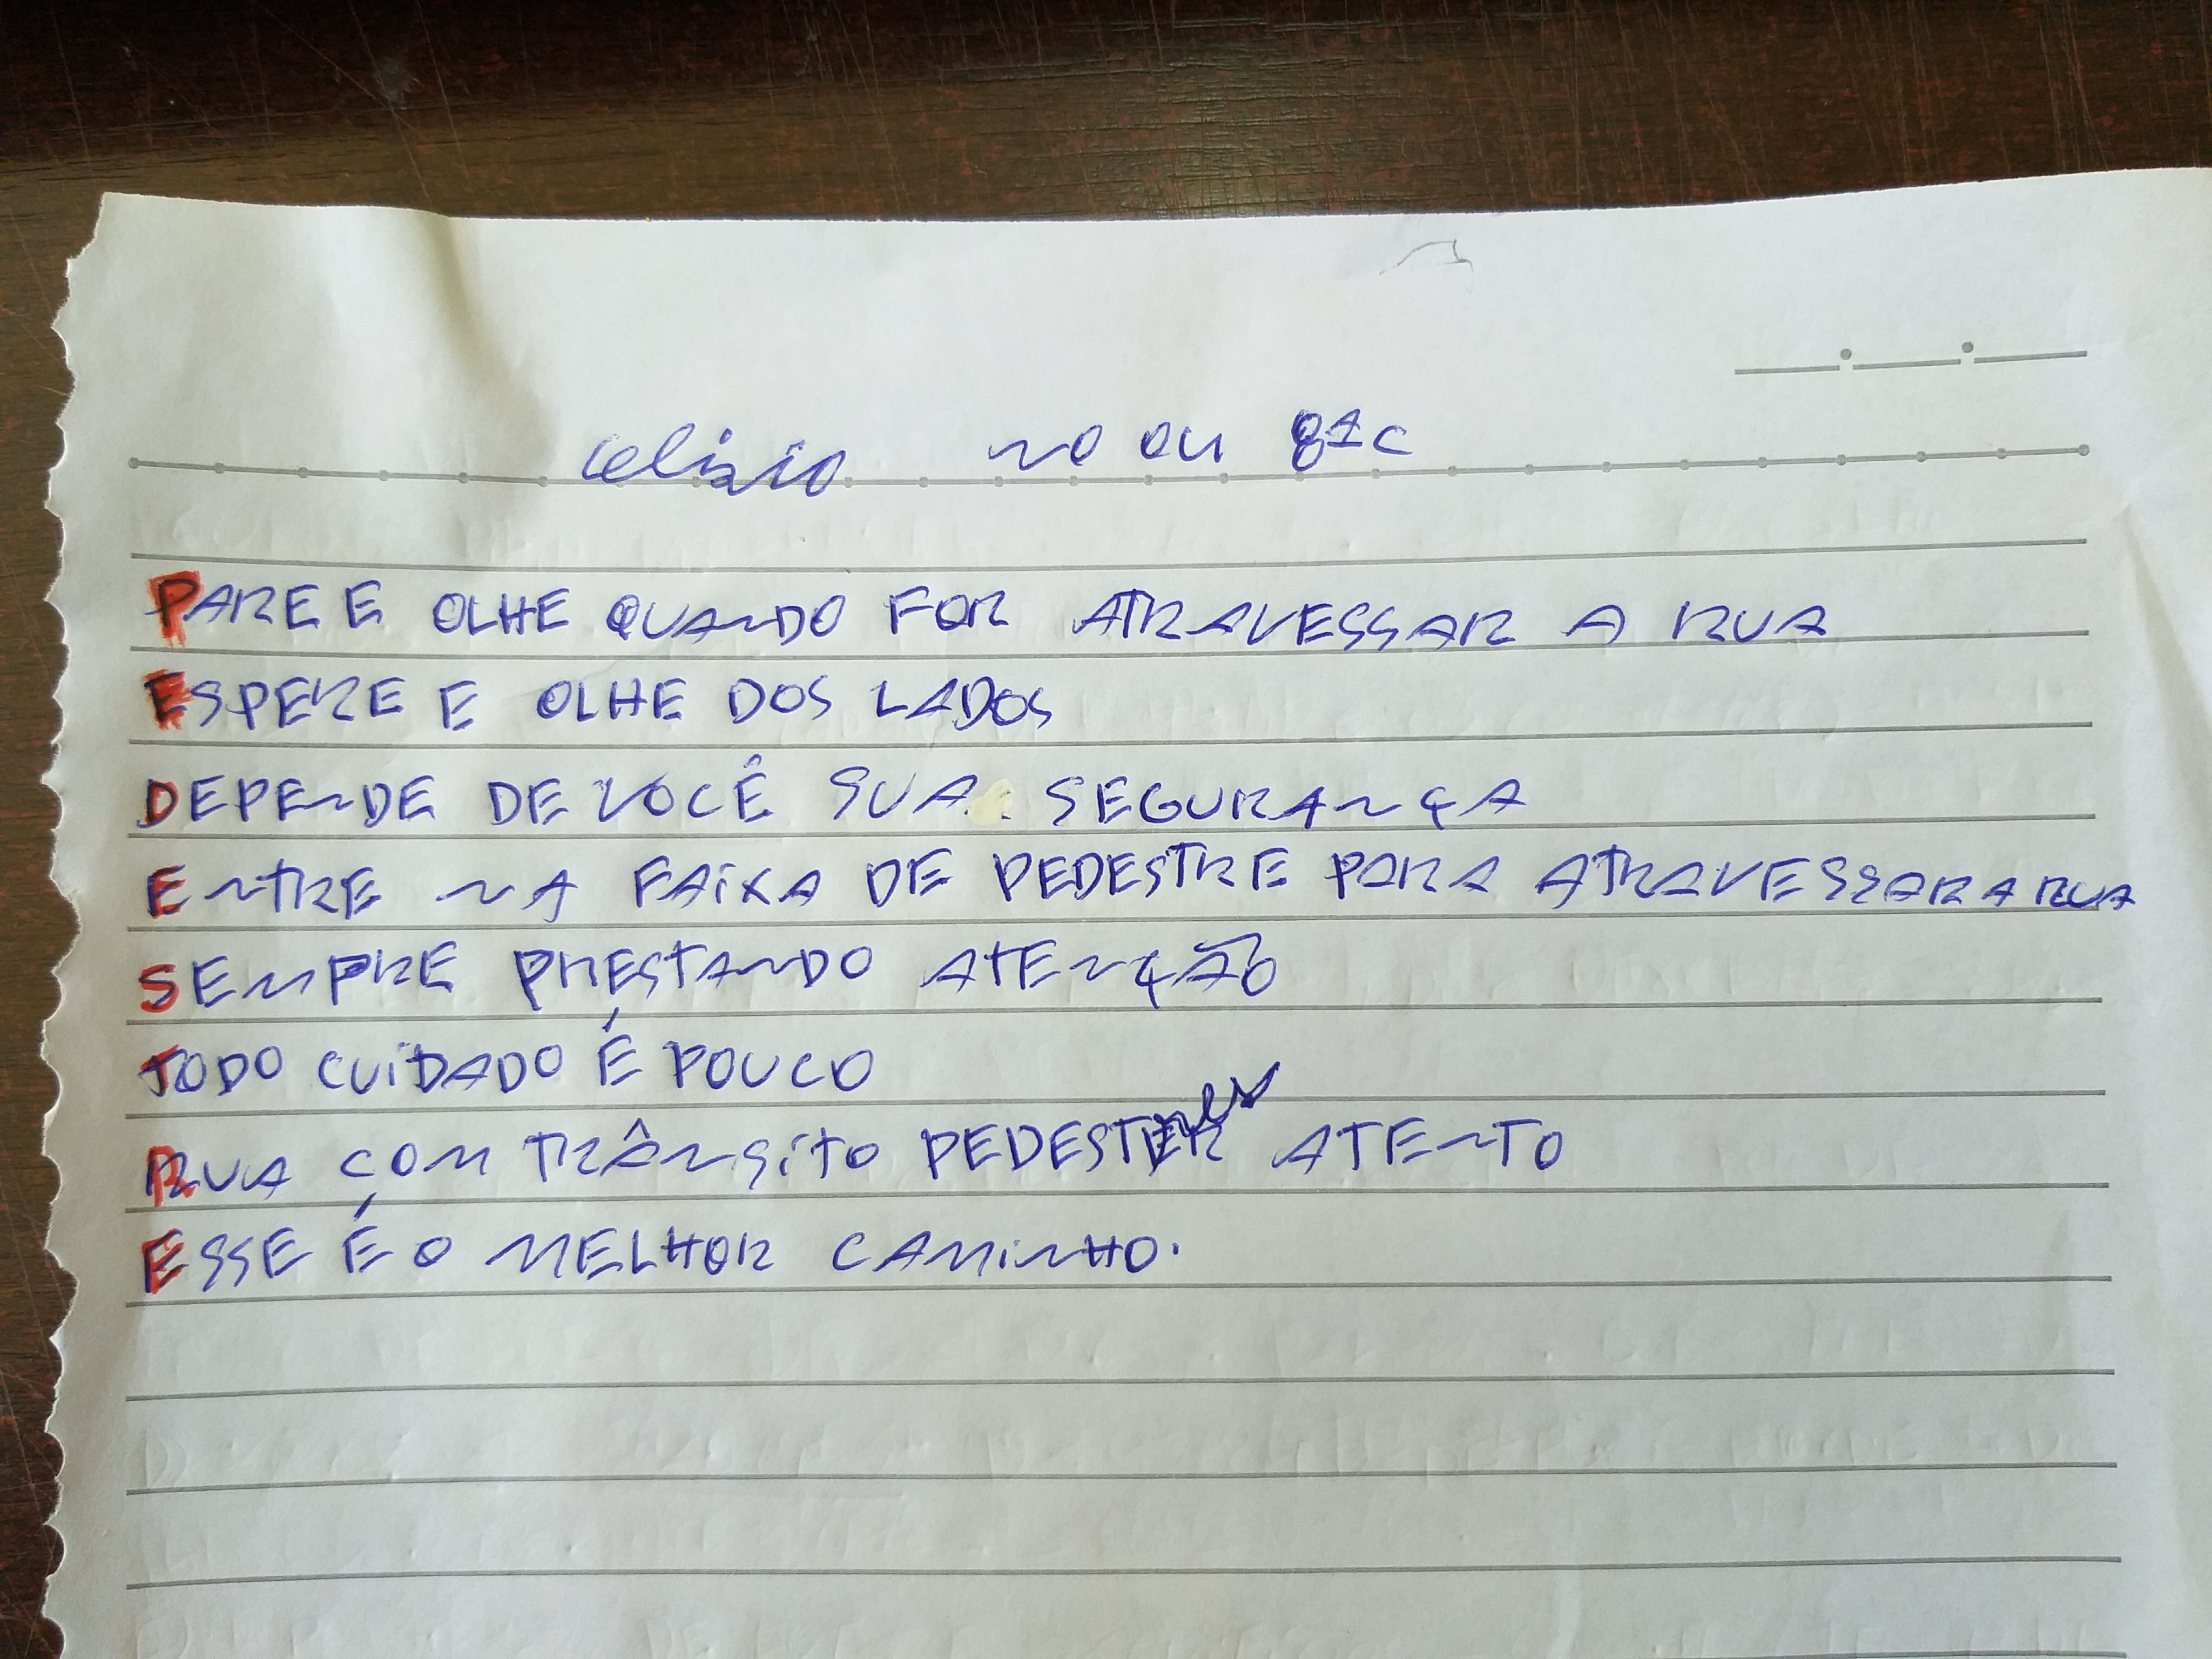 no 04 81c
PARE E OLHE QUANDO FOR ATRAVESSAR A RUA
ESPERE E OLHE DOS LADOS
DEPENDE DE VOCÊ SUA SEGURANÇA
ENTRE NA FAIXA DE PEDESTRE PARA ATRAVESSAR A RUA
SEMPRE PRESTANDO ATENÇÃO
TODO CUIDADO É POUCO
RUA COM TRÂNSITO ATENTO
ESSE É O MELHOR CAMINHO.